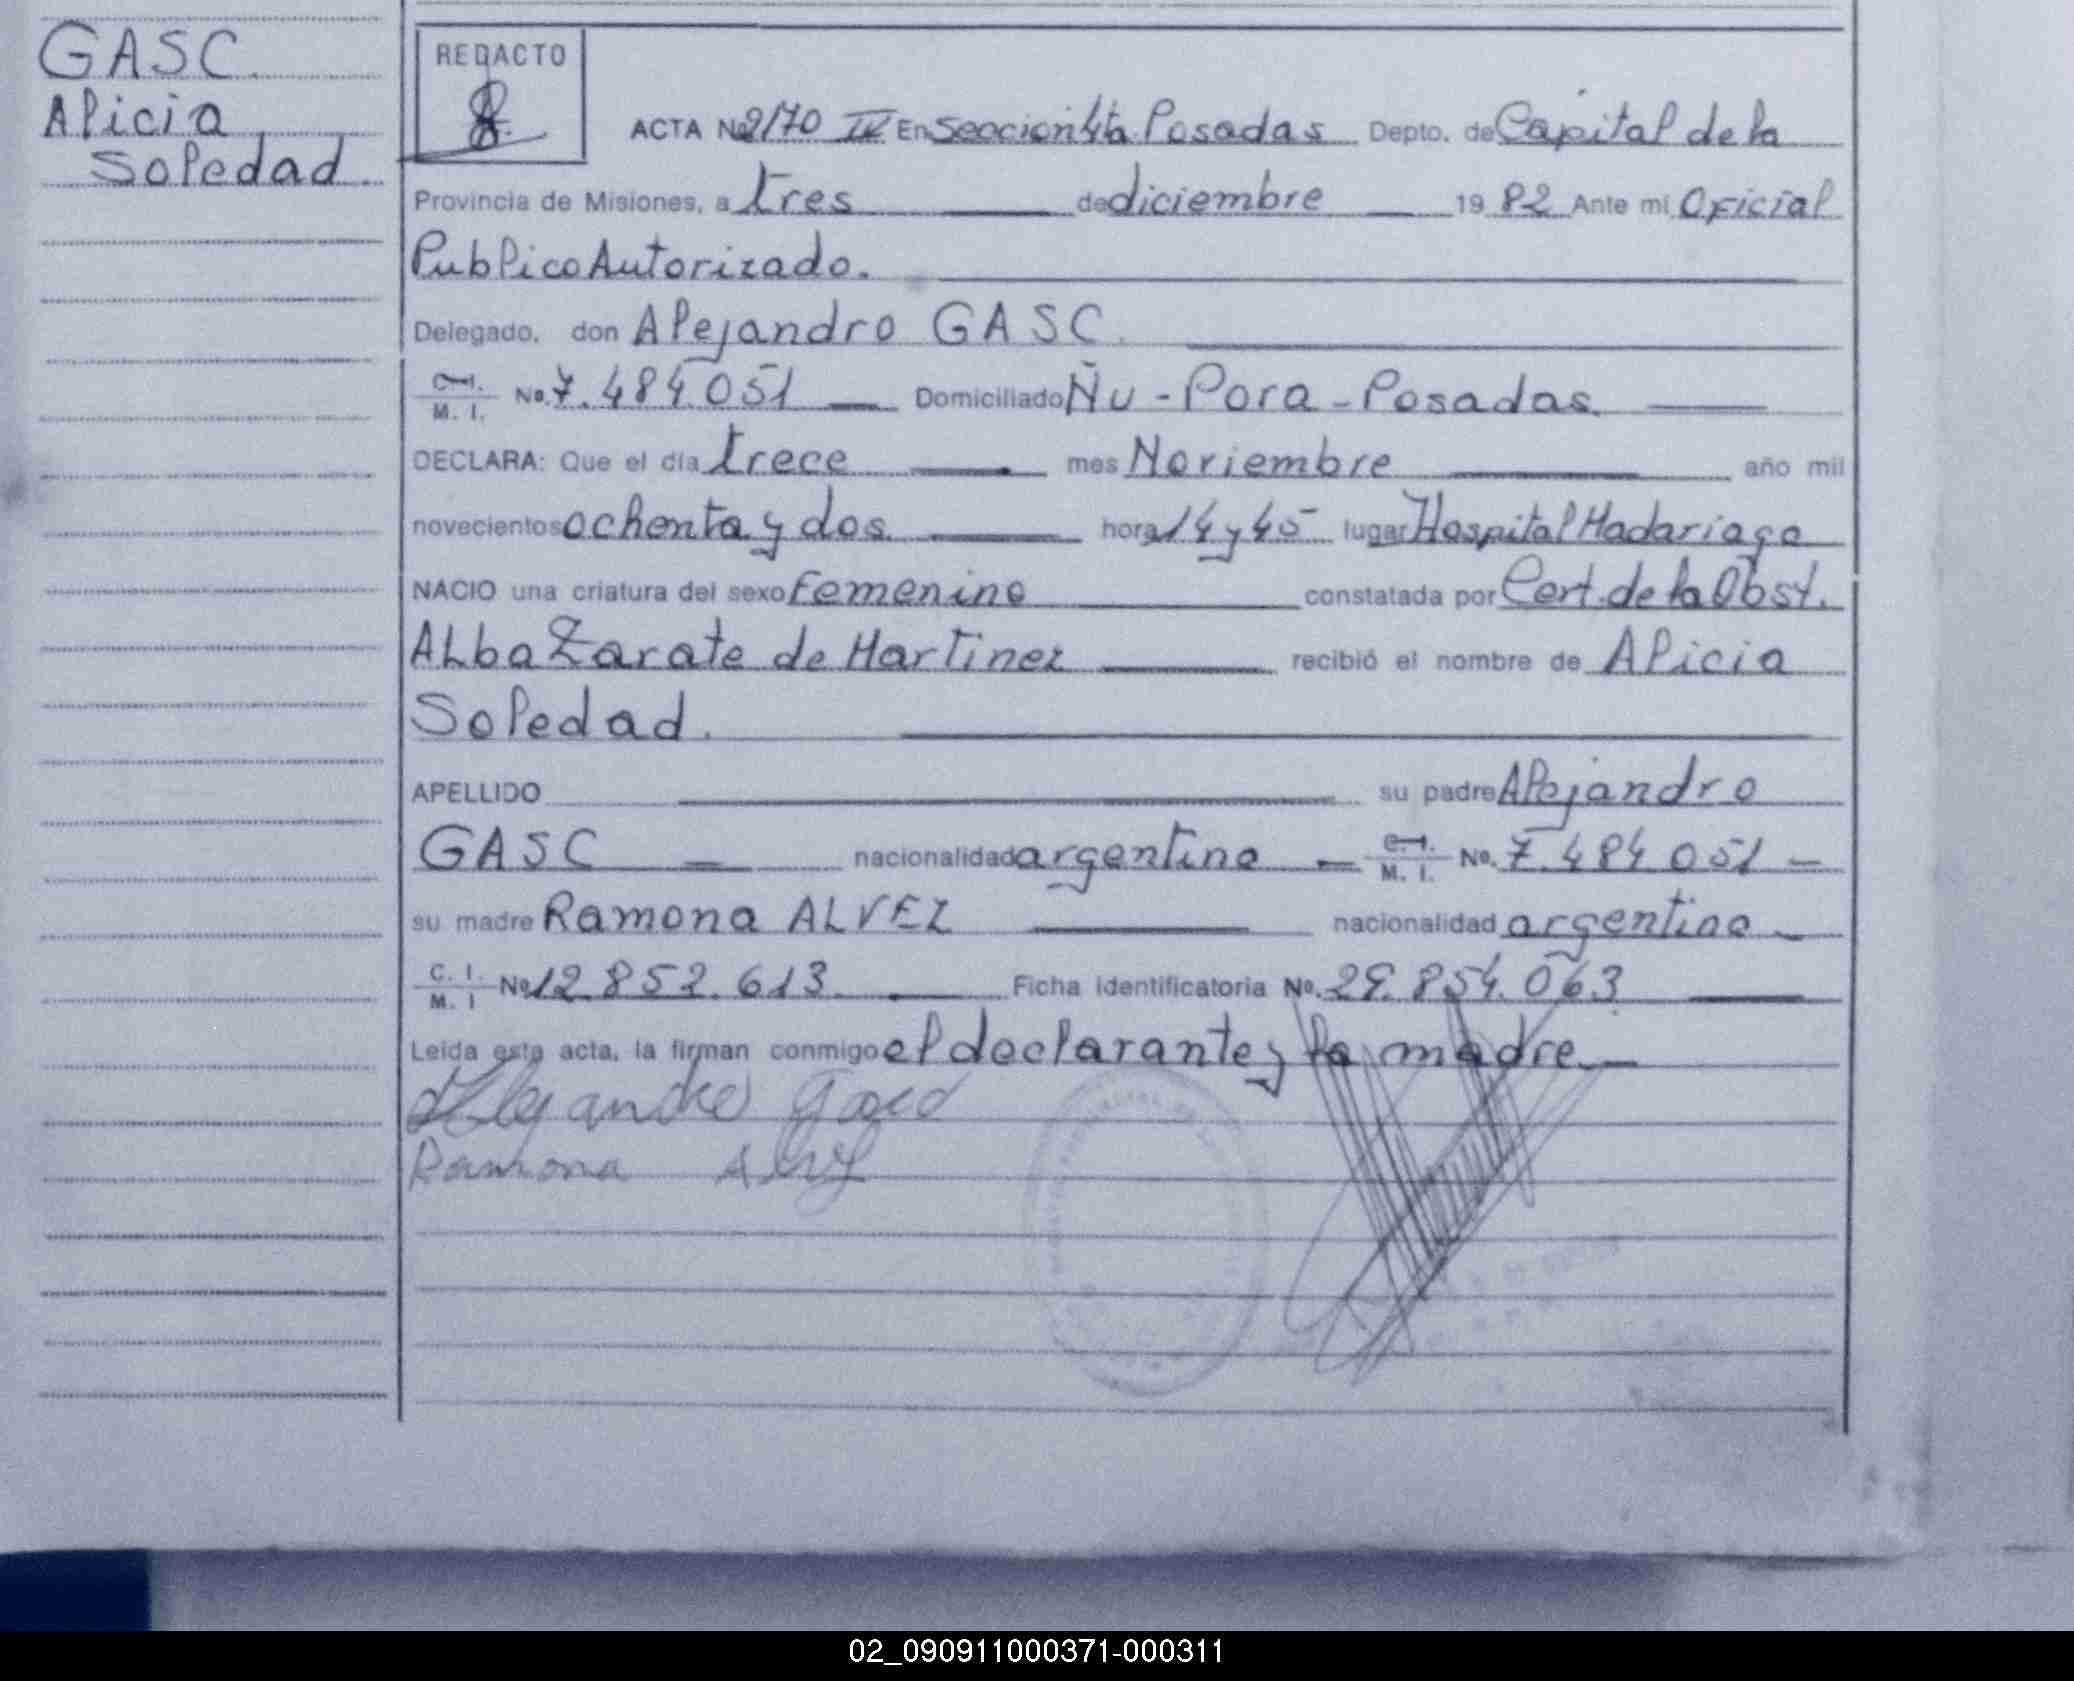 GASC
Alicia
Soledad
REDACTO
ACTA No 2170 IV En Seccion 4ta Posadas Depto. de Capital de la
Provincia de Misiones, a tres de diciembre 1982 Ante mi Oficial
Publico Autorizado.
Delegado, don Alejandro GASC.
C.I. M. I. No. 7.484.051 Domiciliado Ñu - Pora - Posadas.
DECLARA: Que el día trece mes Noviembre año mil
novecientos ochenta y dos hora 14 y 45 lugar Hospital Madariaga
NACIO una criatura del sexo Femenino constatada por Cert. de la Obst.
Alba Zarate de Martinez recibió el nombre de Alicia
Soledad.
APELLIDO su padre Alejandro
GASC nacionalidad argentina C.I. M. I. No. 7.484.051
su madre Ramona ALVEZ nacionalidad argentina
C. I. M. I No 12.852.613 Ficha identificatoria No. 29.854.063
Leída esta acta, la firman conmigo el declarante y la madre
Alejandro Gasc
Ramona Alvez
02_090911000371-000311